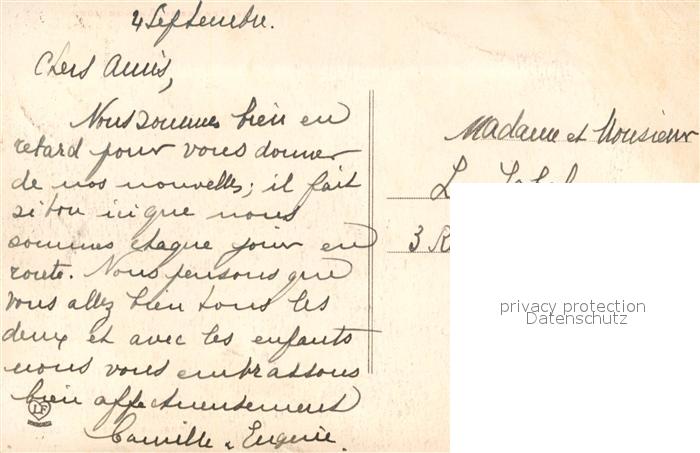 4 Septembre.
Chers Amis,
Nous sommes bien en
retard pour vous donner
de nos nouvelles; il fait
si bon ici que nous
sommes chaque jour en
route. Nous pensons que
vous allez bien tous les
deux et avec les enfants
nous vous embrassons
bien affectueusement
Camille & Eugenie.
LF
Madame et Monsieur
L
3 R
privacy protection
Datenschutz